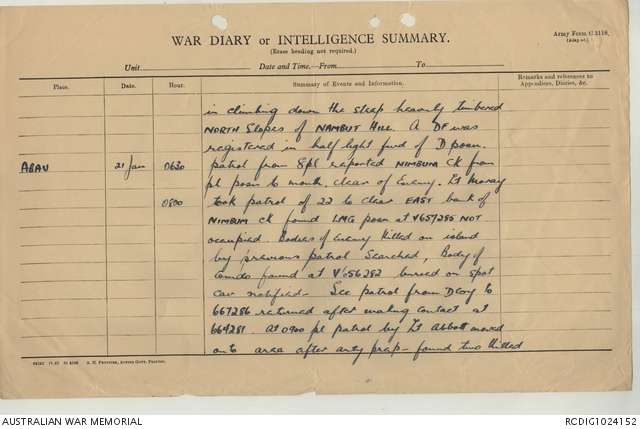 Army Form C.2118.
(Adapted.)
WAR DIARY or INTELLIGENCE SUMMARY.
(Erase heading not required.)
Unit Date and Time.—From To
Place. Date. Hour. Summary of Events and Information. Remarks and references to Appendices, Diaries, &c.
in climbing down the steep heavily timbered
NORTH Slopes of NAMBUT HILL. A DF was
registered in half light fwd of D posn.
ABAU 21 Jan 0630 patrol from 8pl reported NIMBUM CK from
pl posn to mouth, clear of Enemy. Lt Moray
0800 took patrol of 22 to clear EAST bank of
NIMBUM CK found LMG posn at V657285 NOT
occupied. Bodies of Enemy Killed on island
by previous patrol Searched, Body of
Comdo found at V656282 buried on spot
notified. Sec patrol from D Coy to
667286 returned after making contact at
664281. At 0900 pl patrol by Lt Abbott moved
onto area after arty prep - found two Killed
AUSTRALIAN WAR MEMORIAL
RCDIG1024152